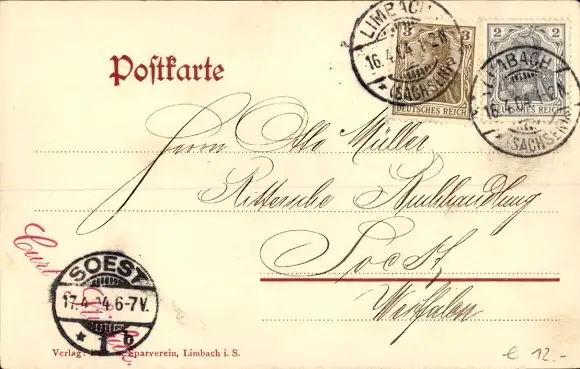 Postkarte
LIMBACH
16.4.04 1-2N
* (SACHSEN) *
3
DEUTSCHES REICH
2
DEUTSCHES REICH
LIMBACH
16.4.04 1-2N
(SACHSEN)
Herrn Otto Müller
Rittersche Buchhandlung
Soest
Westfalen
Curt
SOEST
17.4.04.6-7V.
* 1 b
Verlag: sparverein, Limbach i. S.
€ 12.-